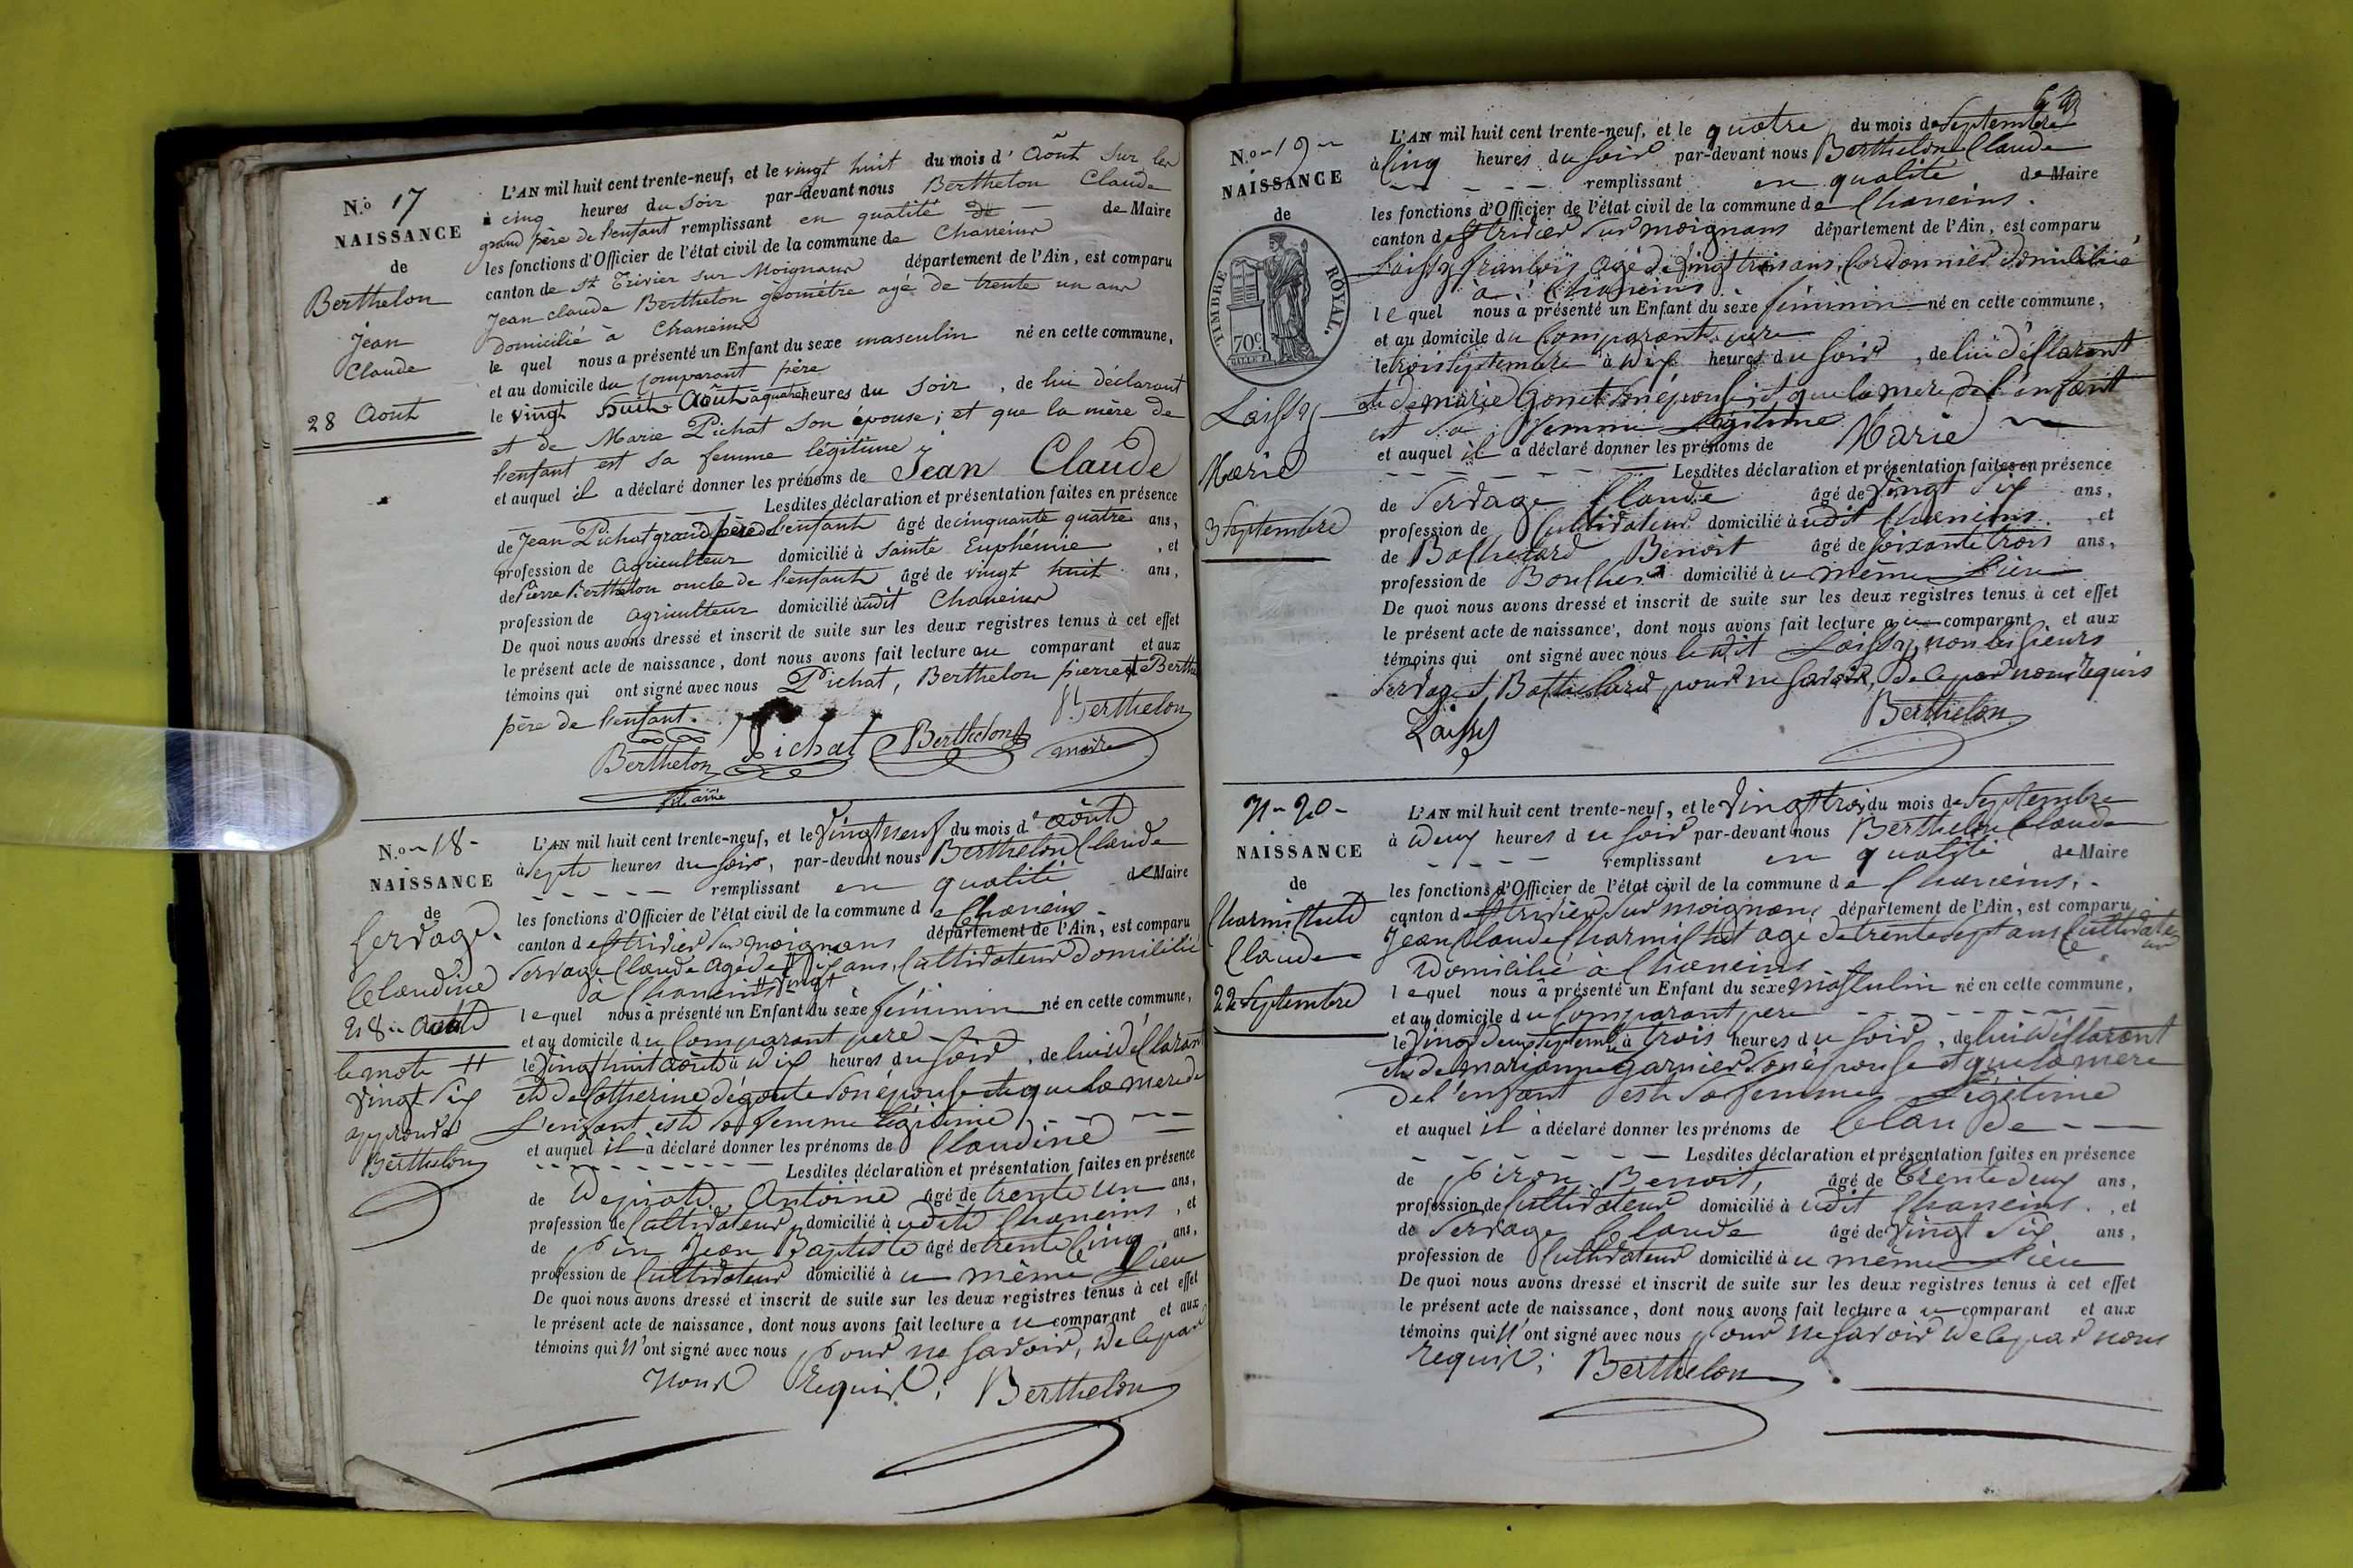 N.o 17
NAISSANCE
de
Berthelon
Jean
Claude
28 Aout
L'AN mil huit cent trente-neuf, et le vingt huit du mois d' Aout sur les
à cinq heures du soir par-devant nous Berthelon Claude
grand père de l'enfant remplissant en qualité de Maire
les fonctions d'Officier de l'état civil de la commune de Chaneins
canton de St Trivier sur Moignans département de l'Ain, est comparu
Jean Claude Berthelon géomètre agé de trente un ans
domicilié à Chaneins
le quel nous a présenté un Enfant du sexe masculin né en cette commune,
et au domicile du comparant père
le vingt huit Août à quatre heures du soir, de lui déclarant
et de Marie Pichat son épouse; et que la mère de
l'enfant est sa femme légitime
et auquel il a déclaré donner les prénoms de Jean Claude
Lesdites déclaration et présentation faites en présence
de Jean Pichat grand père de l'enfant âgé de cinquante quatre ans,
profession de agriculteur domicilié à Sainte Euphémie, et
de Pierre Berthelon oncle de l'enfant âgé de vingt huit ans,
profession de agriculteur domicilié audit Chaneins
De quoi nous avons dressé et inscrit de suite sur les deux registres tenus à cet effet
le présent acte de naissance, dont nous avons fait lecture au comparant et aux
témoins qui ont signé avec nous Pichat, Berthelon pierre et Berthe
père de l'enfant.
Berthelon
Berthelon Pichat Berthelon maire
N.o 18
NAISSANCE
de
Servage
Claudine
28 aout
le mot #
vingt six
approuvé
Berthelon
L'AN mil huit cent trente-neuf, et le Vingt neuf du mois d' août
à Sept heures du soir, par-devant nous Berthelon Claude
remplissant en qualité de Maire
les fonctions d'Officier de l'état civil de la commune de Chaneins
canton de St trivier sur moignans département de l'Ain, est comparu
Servage Claude Agé de # six ans, Cultivateur domicilié
à Chaneins # vingt
le quel nous a présenté un Enfant du sexe féminin né en cette commune,
et au domicile du Comparant père
le Vingt huit août à dix heures du soir, de lui déclarant
et de Catherine dégoute son épouse et que la mere de
L'enfant est sa femme légitime
et auquel il a déclaré donner les prénoms de Claudine
Lesdites déclaration et présentation faites en présence
de Antoine âgé de trente un ans,
profession de Cultivateur domicilié à udit Chaneins, et
de Pin Jean Baptiste âgé de trente Cinq ans,
profession de Cultivateur domicilié à u même Lieu
De quoi nous avons dressé et inscrit de suite sur les deux registres tenus à cet effet
le présent acte de naissance, dont nous avons fait lecture a u comparant et aux
témoins qui n'ont signé avec nous pour ne savoir, de ce par
Nous Requis; Berthelon
N.o 19
NAISSANCE
de
TIMBRE ROYAL.
70c
Laissy
Marie
3 Septembre
L'AN mil huit cent trente-neuf, et le quatre du mois de Septembre
à Cinq heures du Soir par-devant nous Berthelon Claude
remplissant en qualité de Maire
les fonctions d'Officier de l'état civil de la commune de Chaneins.
canton de St trivier sur moignans département de l'Ain, est comparu
Laissy françois Agé de Vingt trois ans, Cordonnier domicilié
à Chaneins
le quel nous a présenté un Enfant du sexe féminin né en cette commune,
et au domicile du Comparant père
le trois septembre à dix heures du Soir, de lui déclarant
et de marie Gonet son épouse et que la mere de l'enfant
est Sa femme légitime
et auquel il a déclaré donner les prénoms de Marie
Lesdites déclaration et présentation faites en présence
de Servage Claude âgé de Vingt Six ans,
profession de Cultivateur domicilié à udit Chaneins, et
de Benoit âgé de soixante trois ans,
profession de domicilié à u même Lieu
De quoi nous avons dressé et inscrit de suite sur les deux registres tenus à cet effet
le présent acte de naissance, dont nous avons fait lecture a u comparant et aux
témoins qui ont signé avec nous le dit Laissy, non les sieurs
Servage et pour ne savoir, de ce par nous Requis
Laissy Berthelon
N 20
NAISSANCE
de
Charmichet
Claude
22 Septembre
L'AN mil huit cent trente-neuf, et le Vingt trois du mois de Septembre
à deux heures du soir par-devant nous Berthelon Claude
remplissant en qualité de Maire
les fonctions d'Officier de l'état civil de la commune de Chaneins.
canton de St trivier sur moignans département de l'Ain, est comparu
Jean Claude Charmichet agé de trente sept ans Cultivateur
Domicilié à Chaneins
le quel nous a présenté un Enfant du sexe masculin né en cette commune,
et au domicile du Comparant pere
le Vingt deux septembre à trois heures du soir, de lui déclarant
et de marianne garnier son épouse et que la mere
de l'enfant est sa femme Légitime
et auquel il a déclaré donner les prénoms de Claude
Lesdites déclaration et présentation faites en présence
de Benoit, âgé de trente deux ans,
profession de Cultivateur domicilié à udit Chaneins, et
de Servage Claude âgé de Vingt Six ans,
profession de Cultivateur domicilié à u même Lieu
De quoi nous avons dressé et inscrit de suite sur les deux registres tenus à cet effet
le présent acte de naissance, dont nous avons fait lecture a u comparant et aux
témoins qui n'ont signé avec nous pour ne savoir de ce par nous
Requis; Berthelon